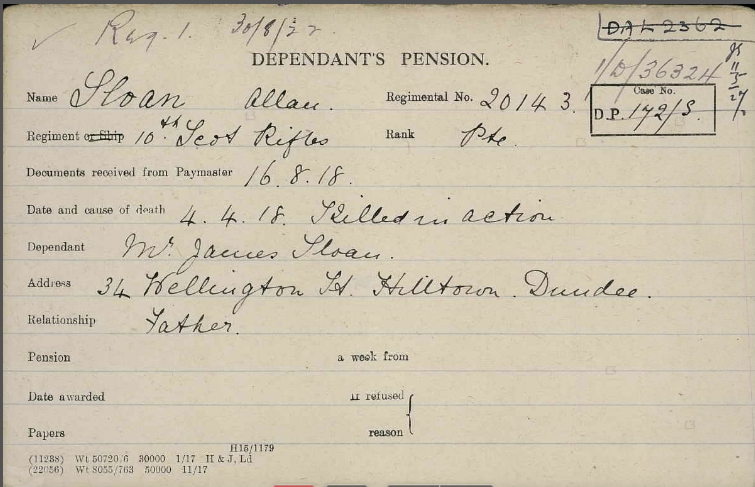 ✓ Reg. 1. 30/8/22
DAL 2362
DEPENDANT'S PENSION.
1/D/36324
Name Sloan Allan. Regimental No. 20143.
Case No.
D.P. 172/S.
Regiment or Ship 10th Scot Rifles Rank Pte.
Documents received from Paymaster 16.8.18.
Date and cause of death 4.4.18. Killed in action
Dependant Mr. James Sloan.
Address 34 Wellington St. Hilltown. Dundee.
Relationship Father.
Pension a week from
Date awarded If refused
Papers reason
H15/1179
(11238) Wt 50720/6 30000 1/17 H & J, Ld
(22056) Wt 8055/763 50000 11/17